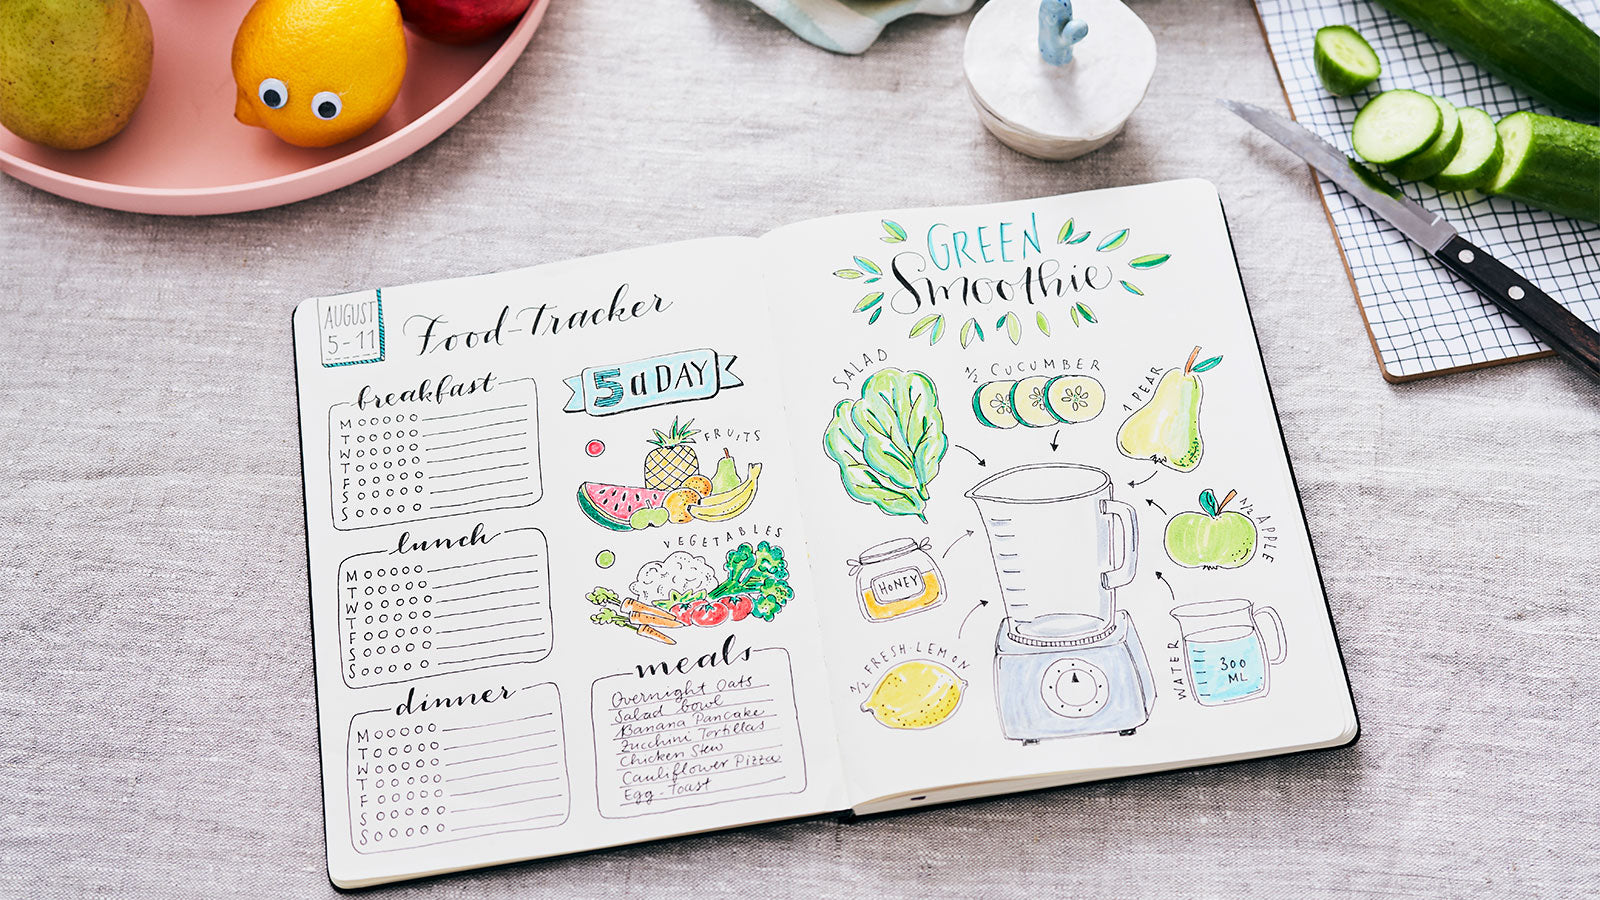 AUGUST
5-11
Food-tracker
breakfast
M
T
W
T
F
S
S
lunch
M
T
W
T
F
S
S
dinner
M
T
W
T
F
S
S
5 a DAY
FRUITS
VEGETABLES
meals
Overnight Oats
Salad bowl
Banana Pancake
Zucchini Tortillas
Chicken Stew
Cauliflower Pizza
Egg-Toast
GREEN
Smoothie
SALAD
1/2 CUCUMBER
1 PEAR
1/2 APPLE
HONEY
1/2 FRESH LEMON
WATER
300
ML